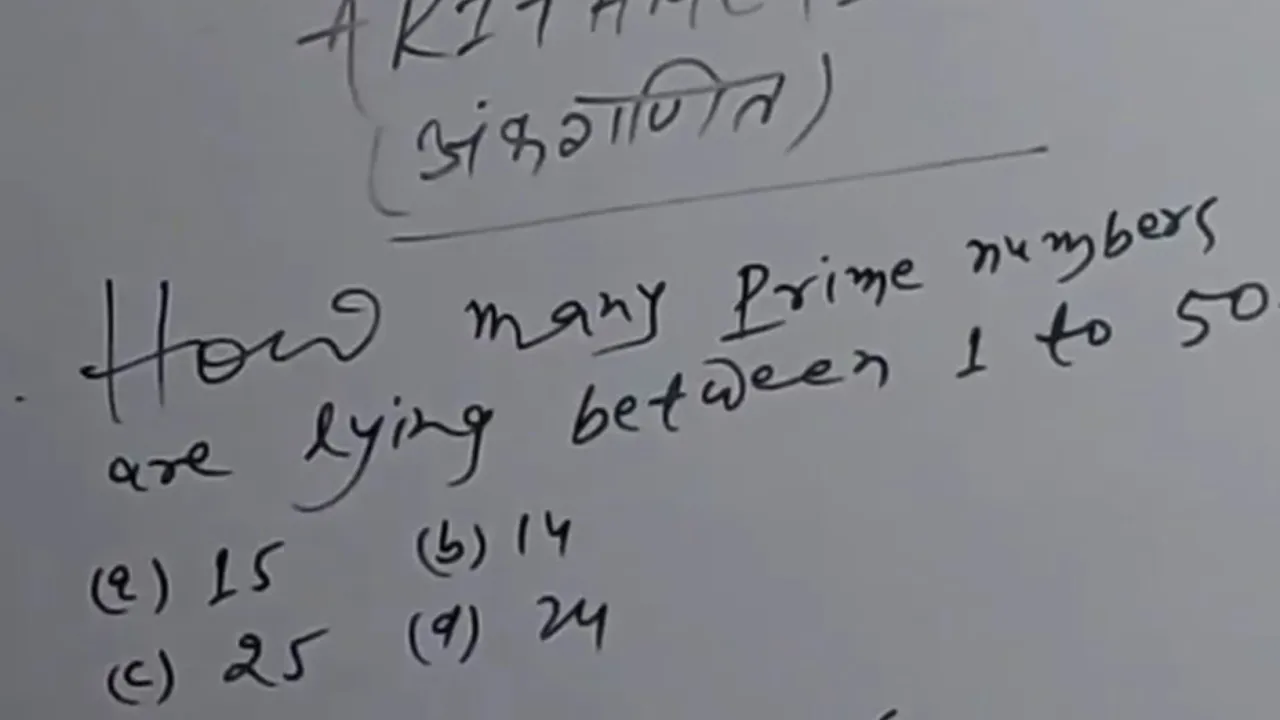 (अंकगणित)
How many Prime numbers
are lying between 1 to 50
(a) 15 (b) 14
(c) 25 (d) 24